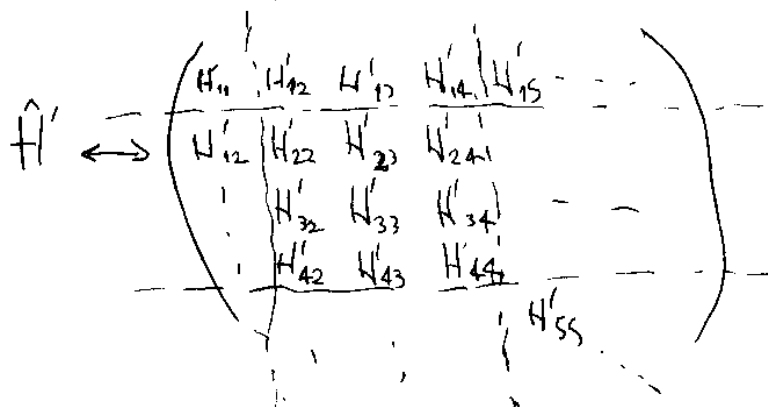 H'₁₁ H'₁₂ H'₁₃ H'₁₄ H'₁₅ - - -
Ĥ' ↔ H'₁₂ H'₂₂ H'₂₃ H'₂₄
H'₃₂ H'₃₃ H'₃₄ - -
H'₄₂ H'₄₃ H'₄₄
H'₅₅